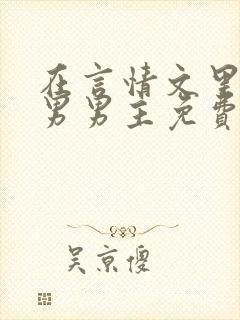 在言情文里
男男主免費
吴京傻